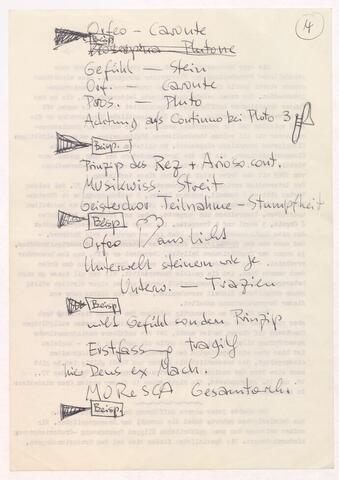 4
Orfeo – Caronte
Beisp.
Proserpina – Plutone
Gefühl – Stein
Orf. – Caronte
Pros. – Pluto
Achtung aus Continuo bei Pluto 3
Beisp.
Prinzip des Rez + Arioso cont.
Musikwiss. Streit
Geisterchor Teilnahme – Stumpfheit
Beisp
Orfeo ans Licht
Unterwelt steinern wie je
Unterw. – Trazien
Beisp.
nicht Gefühl sondern Prinzip
Erstfassung tragisch
hie Deus ex Mach.
MORESCA Gesamtorch.
Beisp.